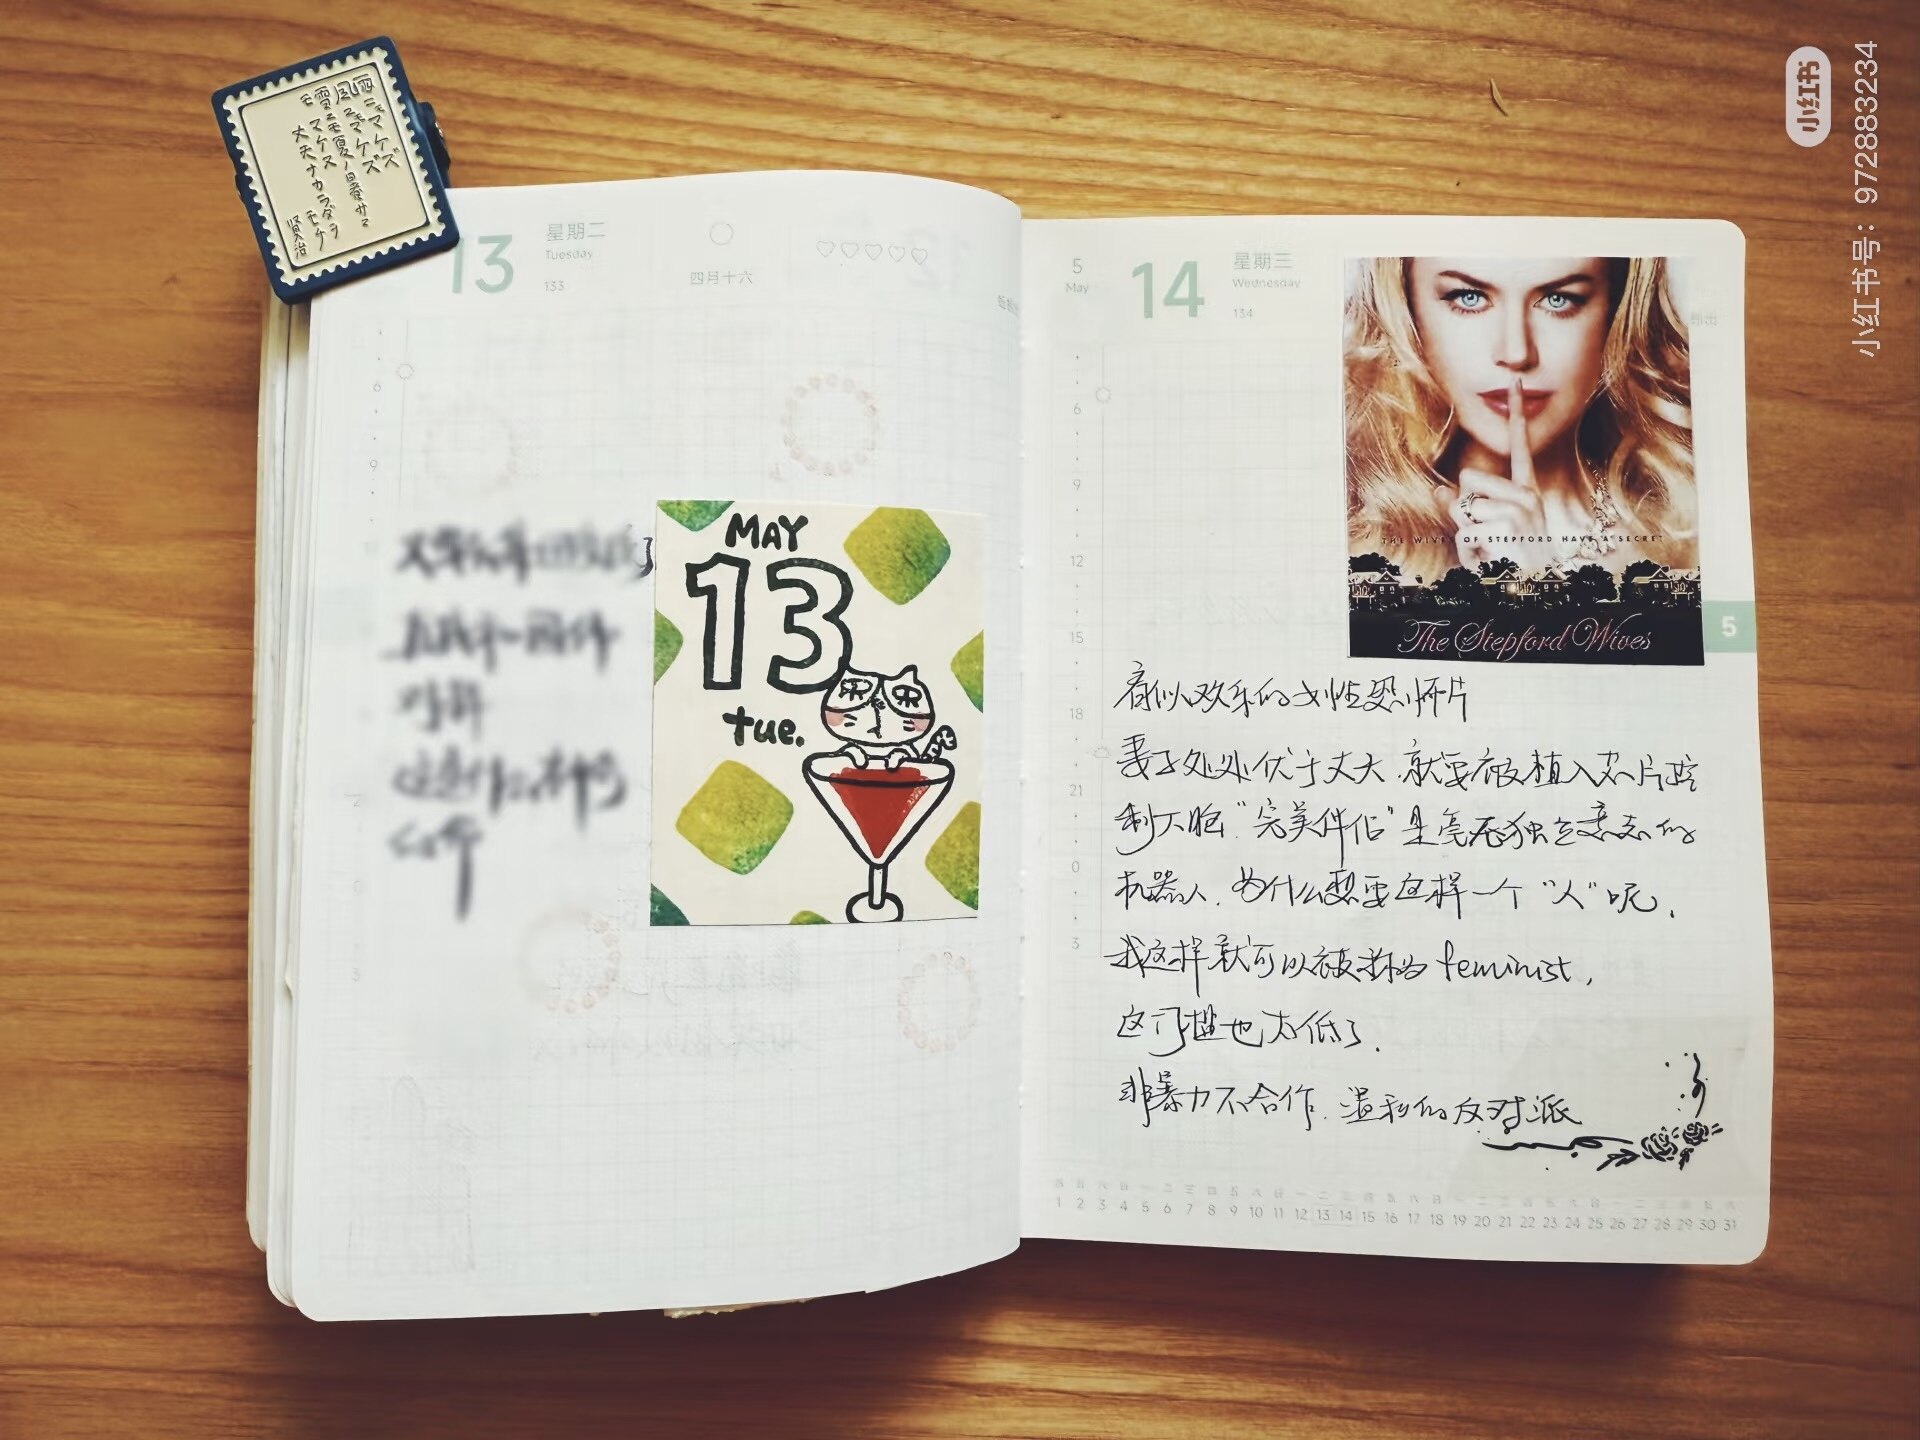 雨ニモマケズ
風ニモマケズ
雪ニモ夏ノ暑サニモ
マケヌ
丈夫ナカラダヲ
モチ
賢治
13
星期二
Tuesday
133
四月十六
6
9
MAY
13
tue.
5
May
14
星期三
Wednesday
134
6
9
12
15
18
21
0
3
THE WIVES OF STEPFORD HAVE A SECRET
The Stepford Wives
5
看似欢乐的女性恐怖片
妻子处处优于丈夫.就要被植入芯片控
制大脑."完美伴侣"是毫无独立意志的
机器人.为什么想要这样一个"人"呢.
我这样就可以被称为feminist,
这门槛也太低了.
非暴力不合作.温和的反对派
1 2 3 4 5 6 7 8 9 10 11 12 13 14 15 16 17 18 19 20 21 22 23 24 25 26 27 28 29 30 31
小红书
小红书号：972883234